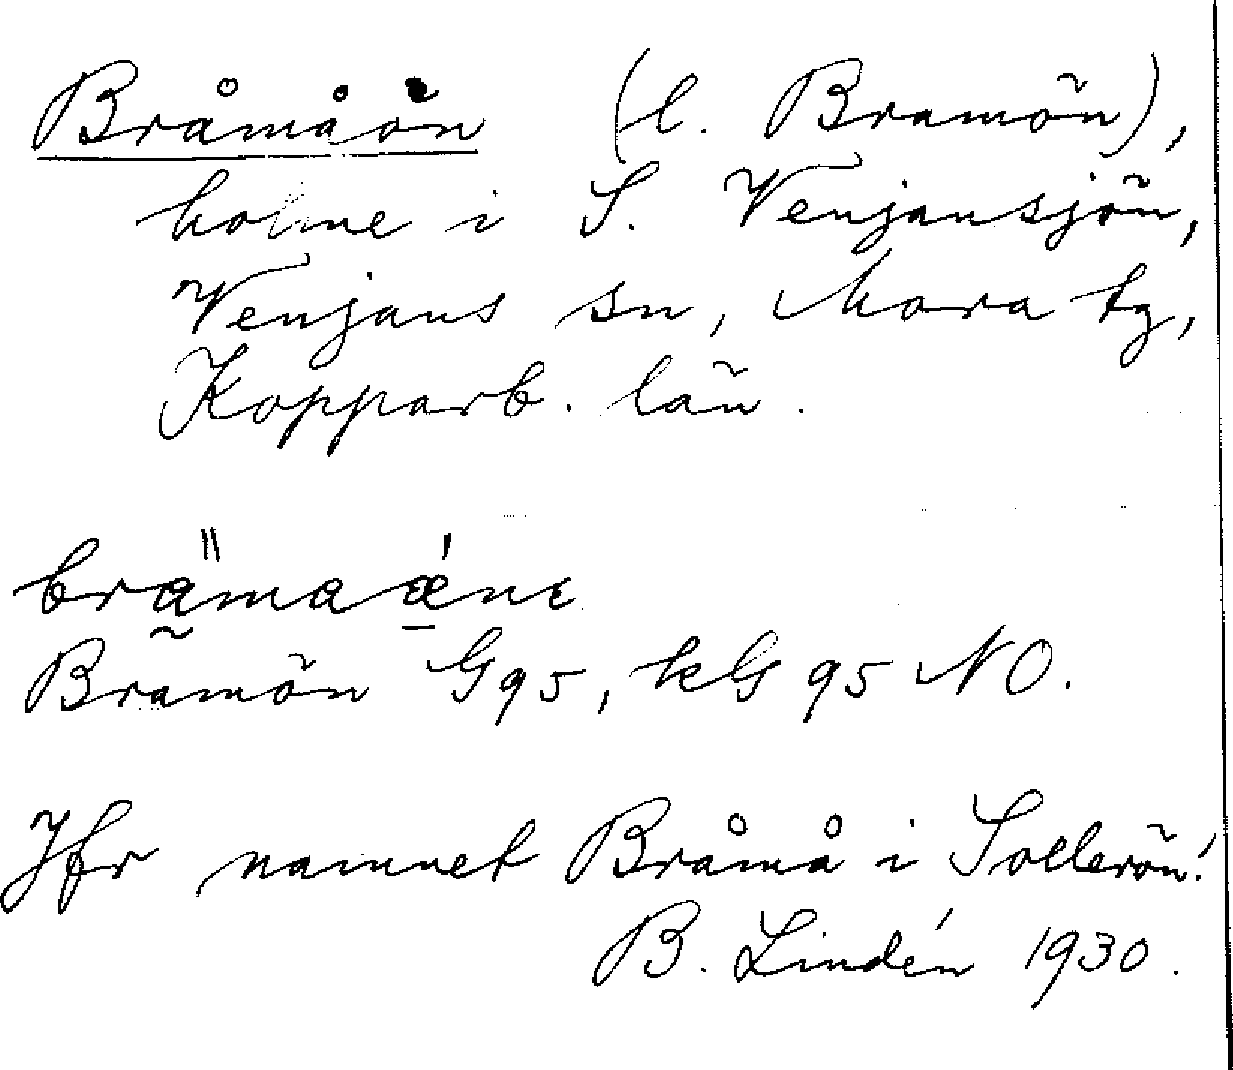 Bråmåön (l. Bramön),
holme i S. Venjansjön,
Venjans sn, Mora tg,
Kopparb. län.
Bramön G95, kG 95 NO.
Jfr namnet Bråmå i Sollerön!
B. Lindén 1930.